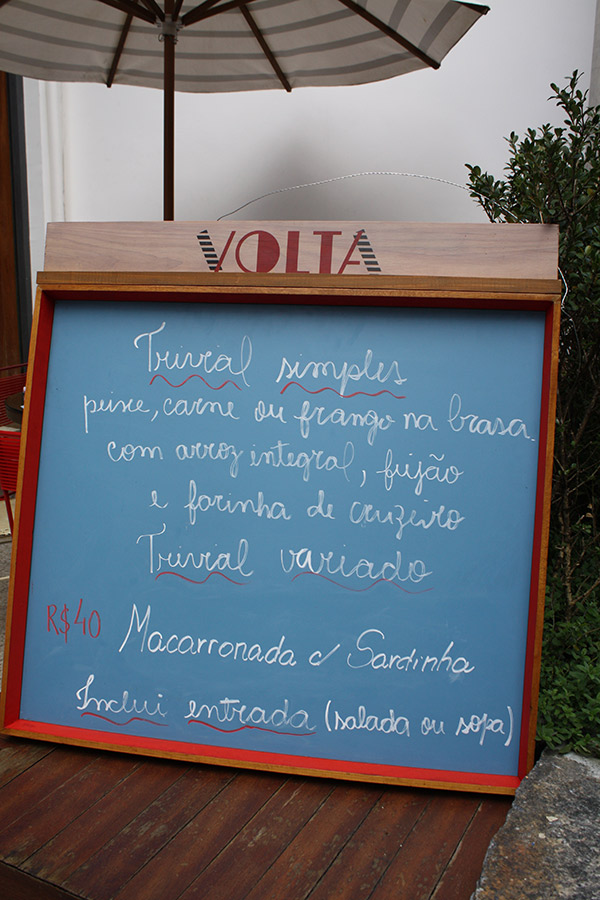 VOLTA
Trivial simples
peixe, carne ou frango na brasa
com arroz integral, feijão
e farinha de cruzeiro
Trivial variado
R$40 Macarronada c/ Sardinha
Inclui entrada (salada ou sopa)